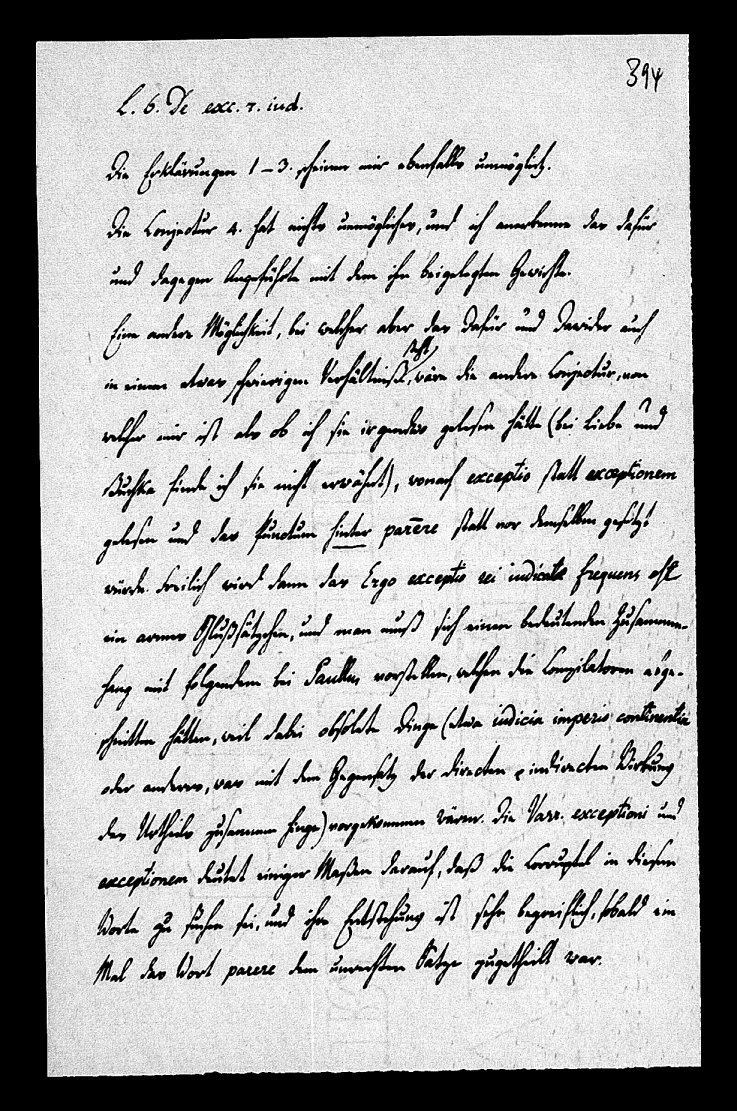 394
L. 6. De exc. r. iud.
Die Erklärungen 1–3. scheinen mir ebenfalls unmöglich.
Die Conjectur 4. hat nichts unmögliches, und ich anerkenne das dafür
und dagegen Angeführte mit dem ihm beigelegten Gewichte.
Eine andere Möglichkeit, bei welcher aber das Dafür und Dawider auch
in einem etwas schwierigen Verhältniß steht, wäre die andere Conjectur, von
welcher mir ist als ob ich sie irgendwo gelesen hätte (bei Liebe und
Buchka finde ich sie nicht erwähnt), wonach exceptio statt exceptionem
gelesen und das Punctum hinter parere statt vor demselben gesetzt
würde. Freilich wird dann das Ergo exceptio rei iudicate frequens est
ein armes Schlußsätzchen, und man muß sich einen bedeutenden Zusammen-
hang mit folgendem bei Paullus vorstellen, welchen die Compilatoren abge-
schnitten hätten, weil dabei obsolete Dinge (etwa iudicia imperio continentia
oder anderes, was mit dem Gegensatz der directen u indirecten Wirkung
des Urtheils zusammen hinge) vorgekommen wären. Die Varr. exceptioni und
exceptionem deutet einiger Maßen darauf, daß die Corruptel in diesem
Worte zu suchen sei, und ihre Entstehung ist sehr begreiflich, sobald ein
Mal das Wort parere dem unrechten Satze zugetheilt war.